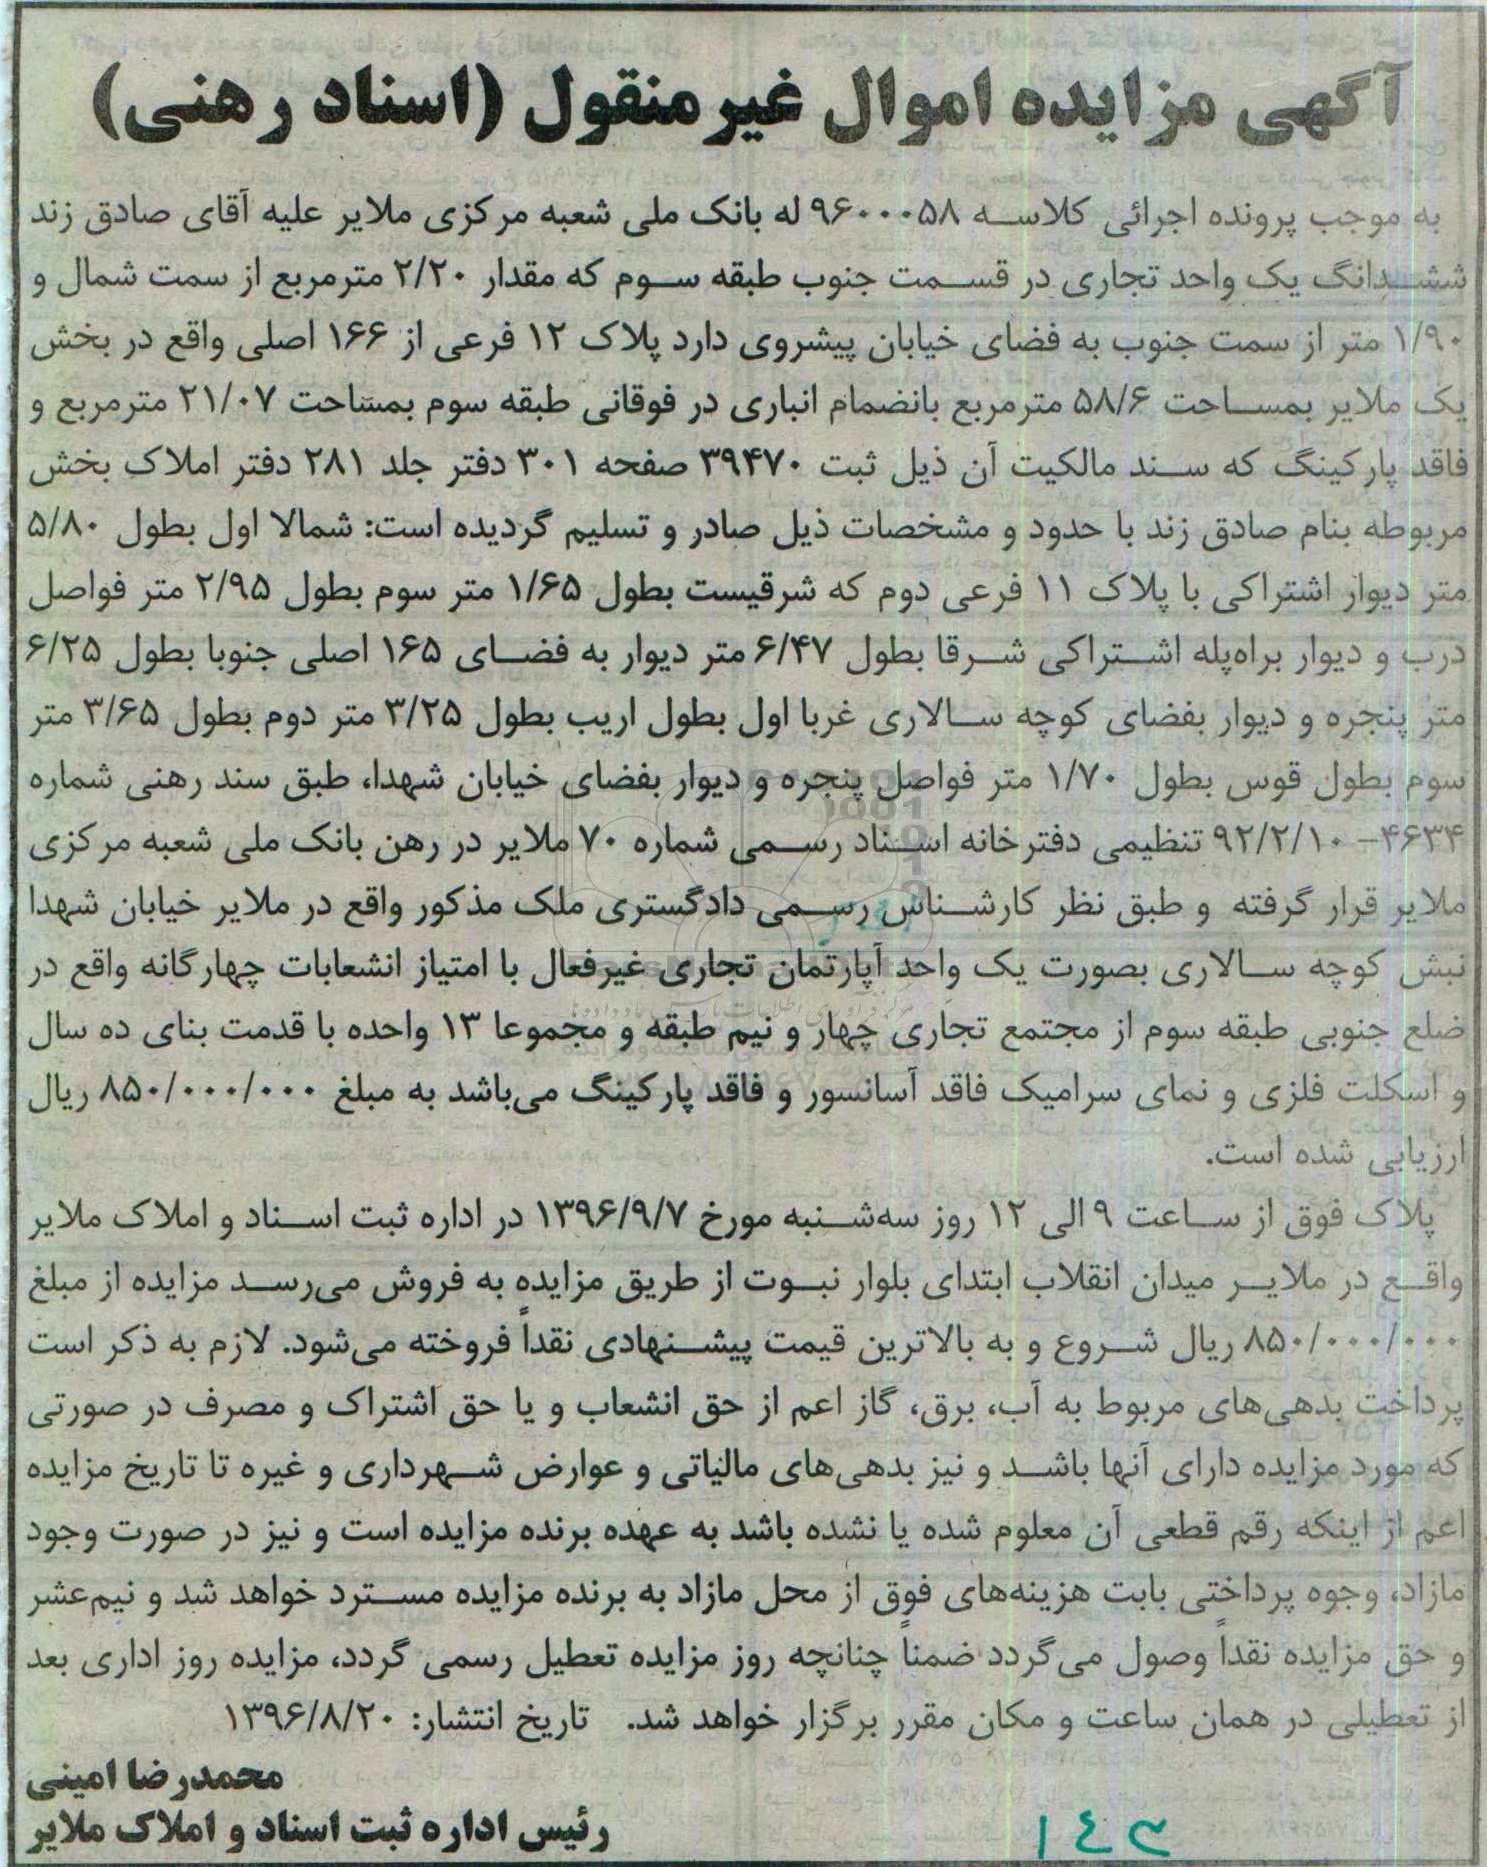 آگهی مزایده اموال غیرمنقول (اسناد رهنی)
به موجب پرونده اجرائی کلاسه ۹۶۰۰۰۵۸ له بانک ملی شعبه مرکزی ملایر علیه آقای صادق زند
ششدانگ یک واحد تجاری در قسمت جنوب طبقه سوم که مقدار ۲/۲۰ مترمربع از سمت شمال و
۱/۹۰ متر از سمت جنوب به فضای خیابان پیشروی دارد پلاک ۱۲ فرعی از ۱۶۶ اصلی واقع در بخش
یک ملایر بمساحت ۵۸/۶ مترمربع بانضمام انباری در فوقانی طبقه سوم بمساحت ۲۱/۰۷ مترمربع و
فاقد پارکینگ که سند مالکیت آن ذیل ثبت ۳۹۴۷۰ صفحه ۳۰۱ دفتر جلد ۲۸۱ دفتر املاک بخش
مربوطه بنام صادق زند با حدود و مشخصات ذیل صادر و تسلیم گردیده است: شمالا اول بطول ۵/۸۰
متر دیوار اشتراکی با پلاک ۱۱ فرعی دوم که شرقیست بطول ۱/۶۵ متر سوم بطول ۲/۹۵ متر فواصل
درب و دیوار براه‌پله اشتراکی شرقا بطول ۶/۴۷ متر دیوار به فضای ۱۶۵ اصلی جنوبا بطول ۶/۲۵
متر پنجره و دیوار بفضای کوچه سالاری غربا اول بطول اریب بطول ۳/۲۵ متر دوم بطول ۳/۶۵ متر
سوم بطول قوس بطول ۱/۷۰ متر فواصل پنجره و دیوار بفضای خیابان شهدا، طبق سند رهنی شماره
۴۶۳۴– ۹۲/۲/۱۰ تنظیمی دفترخانه اسناد رسمی شماره ۷۰ ملایر در رهن بانک ملی شعبه مرکزی
ملایر قرار گرفته و طبق نظر کارشناس رسمی دادگستری ملک مذکور واقع در ملایر خیابان شهدا
نبش کوچه سالاری بصورت یک واحد آپارتمان تجاری غیرفعال با امتیاز انشعابات چهارگانه واقع در
ضلع جنوبی طبقه سوم از مجتمع تجاری چهار و نیم طبقه و مجموعا ۱۳ واحده با قدمت بنای ده سال
و اسکلت فلزی و نمای سرامیک فاقد آسانسور و فاقد پارکینگ می‌باشد به مبلغ ۸۵۰/۰۰۰/۰۰۰ ریال
ارزیابی شده است.
پلاک فوق از ساعت ۹ الی ۱۲ روز سه‌شنبه مورخ ۱۳۹۶/۹/۷ در اداره ثبت اسناد و املاک ملایر
واقع در ملایر میدان انقلاب ابتدای بلوار نبوت از طریق مزایده به فروش می‌رسد مزایده از مبلغ
۸۵۰/۰۰۰/۰۰۰ ریال شروع و به بالاترین قیمت پیشنهادی نقداً فروخته می‌شود. لازم به ذکر است
پرداخت بدهی‌های مربوط به آب، برق، گاز اعم از حق انشعاب و یا حق اشتراک و مصرف در صورتی
که مورد مزایده دارای آنها باشد و نیز بدهی‌های مالیاتی و عوارض شهرداری و غیره تا تاریخ مزایده
اعم از اینکه رقم قطعی آن معلوم شده یا نشده باشد به عهده برنده مزایده است و نیز در صورت وجود
مازاد، وجوه پرداختی بابت هزینه‌های فوق از محل مازاد به برنده مزایده مسترد خواهد شد و نیم‌عشر
و حق مزایده نقداً وصول می‌گردد ضمناً چنانچه روز مزایده تعطیل رسمی گردد، مزایده روز اداری بعد
از تعطیلی در همان ساعت و مکان مقرر برگزار خواهد شد. تاریخ انتشار: ۱۳۹۶/۸/۲۰
محمدرضا امینی
رئیس اداره ثبت اسناد و املاک ملایر